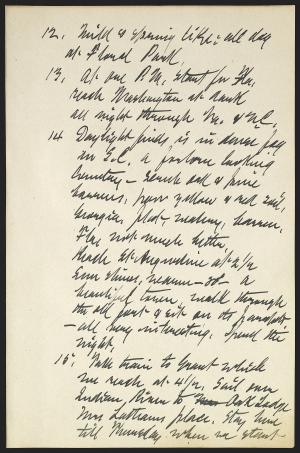 12. Mild & spring like; all day
at Floral Park.
13. At one P.M. start for Fla.
reach Washington at dark
all night through Va. & N.C.
14 Daylight finds us in dense fog
in S.C. a forlorn looking
country – scrub oak & pine
barrens, poor yellow & red soil,
Georgia, flat, watery, barren,
Fla. not much better,
Reach St. Augustine at 2 1/2
Sun shines, warm – 68 – a
beautiful town, walk through
the old fort & sit on its parapet
– all very interesting. Spend the
night.
15. Take train to Grant which
we reach at 4 1/2. Sail over
Indian River to Oak Lodge
Mrs Latham's place. Stay here
till Thursday when we start